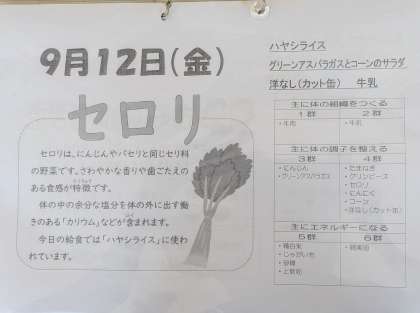 9月12日(金)
セロリ
セロリは、にんじんやパセリと同じセリ科
の野菜です。さわやかな香りや歯ごたえの
ある食感が特徴です。
体の中の余分な塩分を体の外に出す働
きのある「カリウム」などが含まれます。
今日の給食では「ハヤシライス」に使わ
れています。
ハヤシライス
グリーンアスパラガスとコーンのサラダ
洋なし(カット缶) 牛乳
主に体の組織をつくる
1群 2群
・牛肉 ・牛乳
主に体の調子を整える
3群 4群
・にんじん ・たまねぎ
・グリーンアスパラガス ・グリンピース
・セロリ
・にんにく
・コーン
・洋なし(カット缶)
主にエネルギーになる
5群 6群
・精白米
・じゃがいも
・砂糖
・上新粉